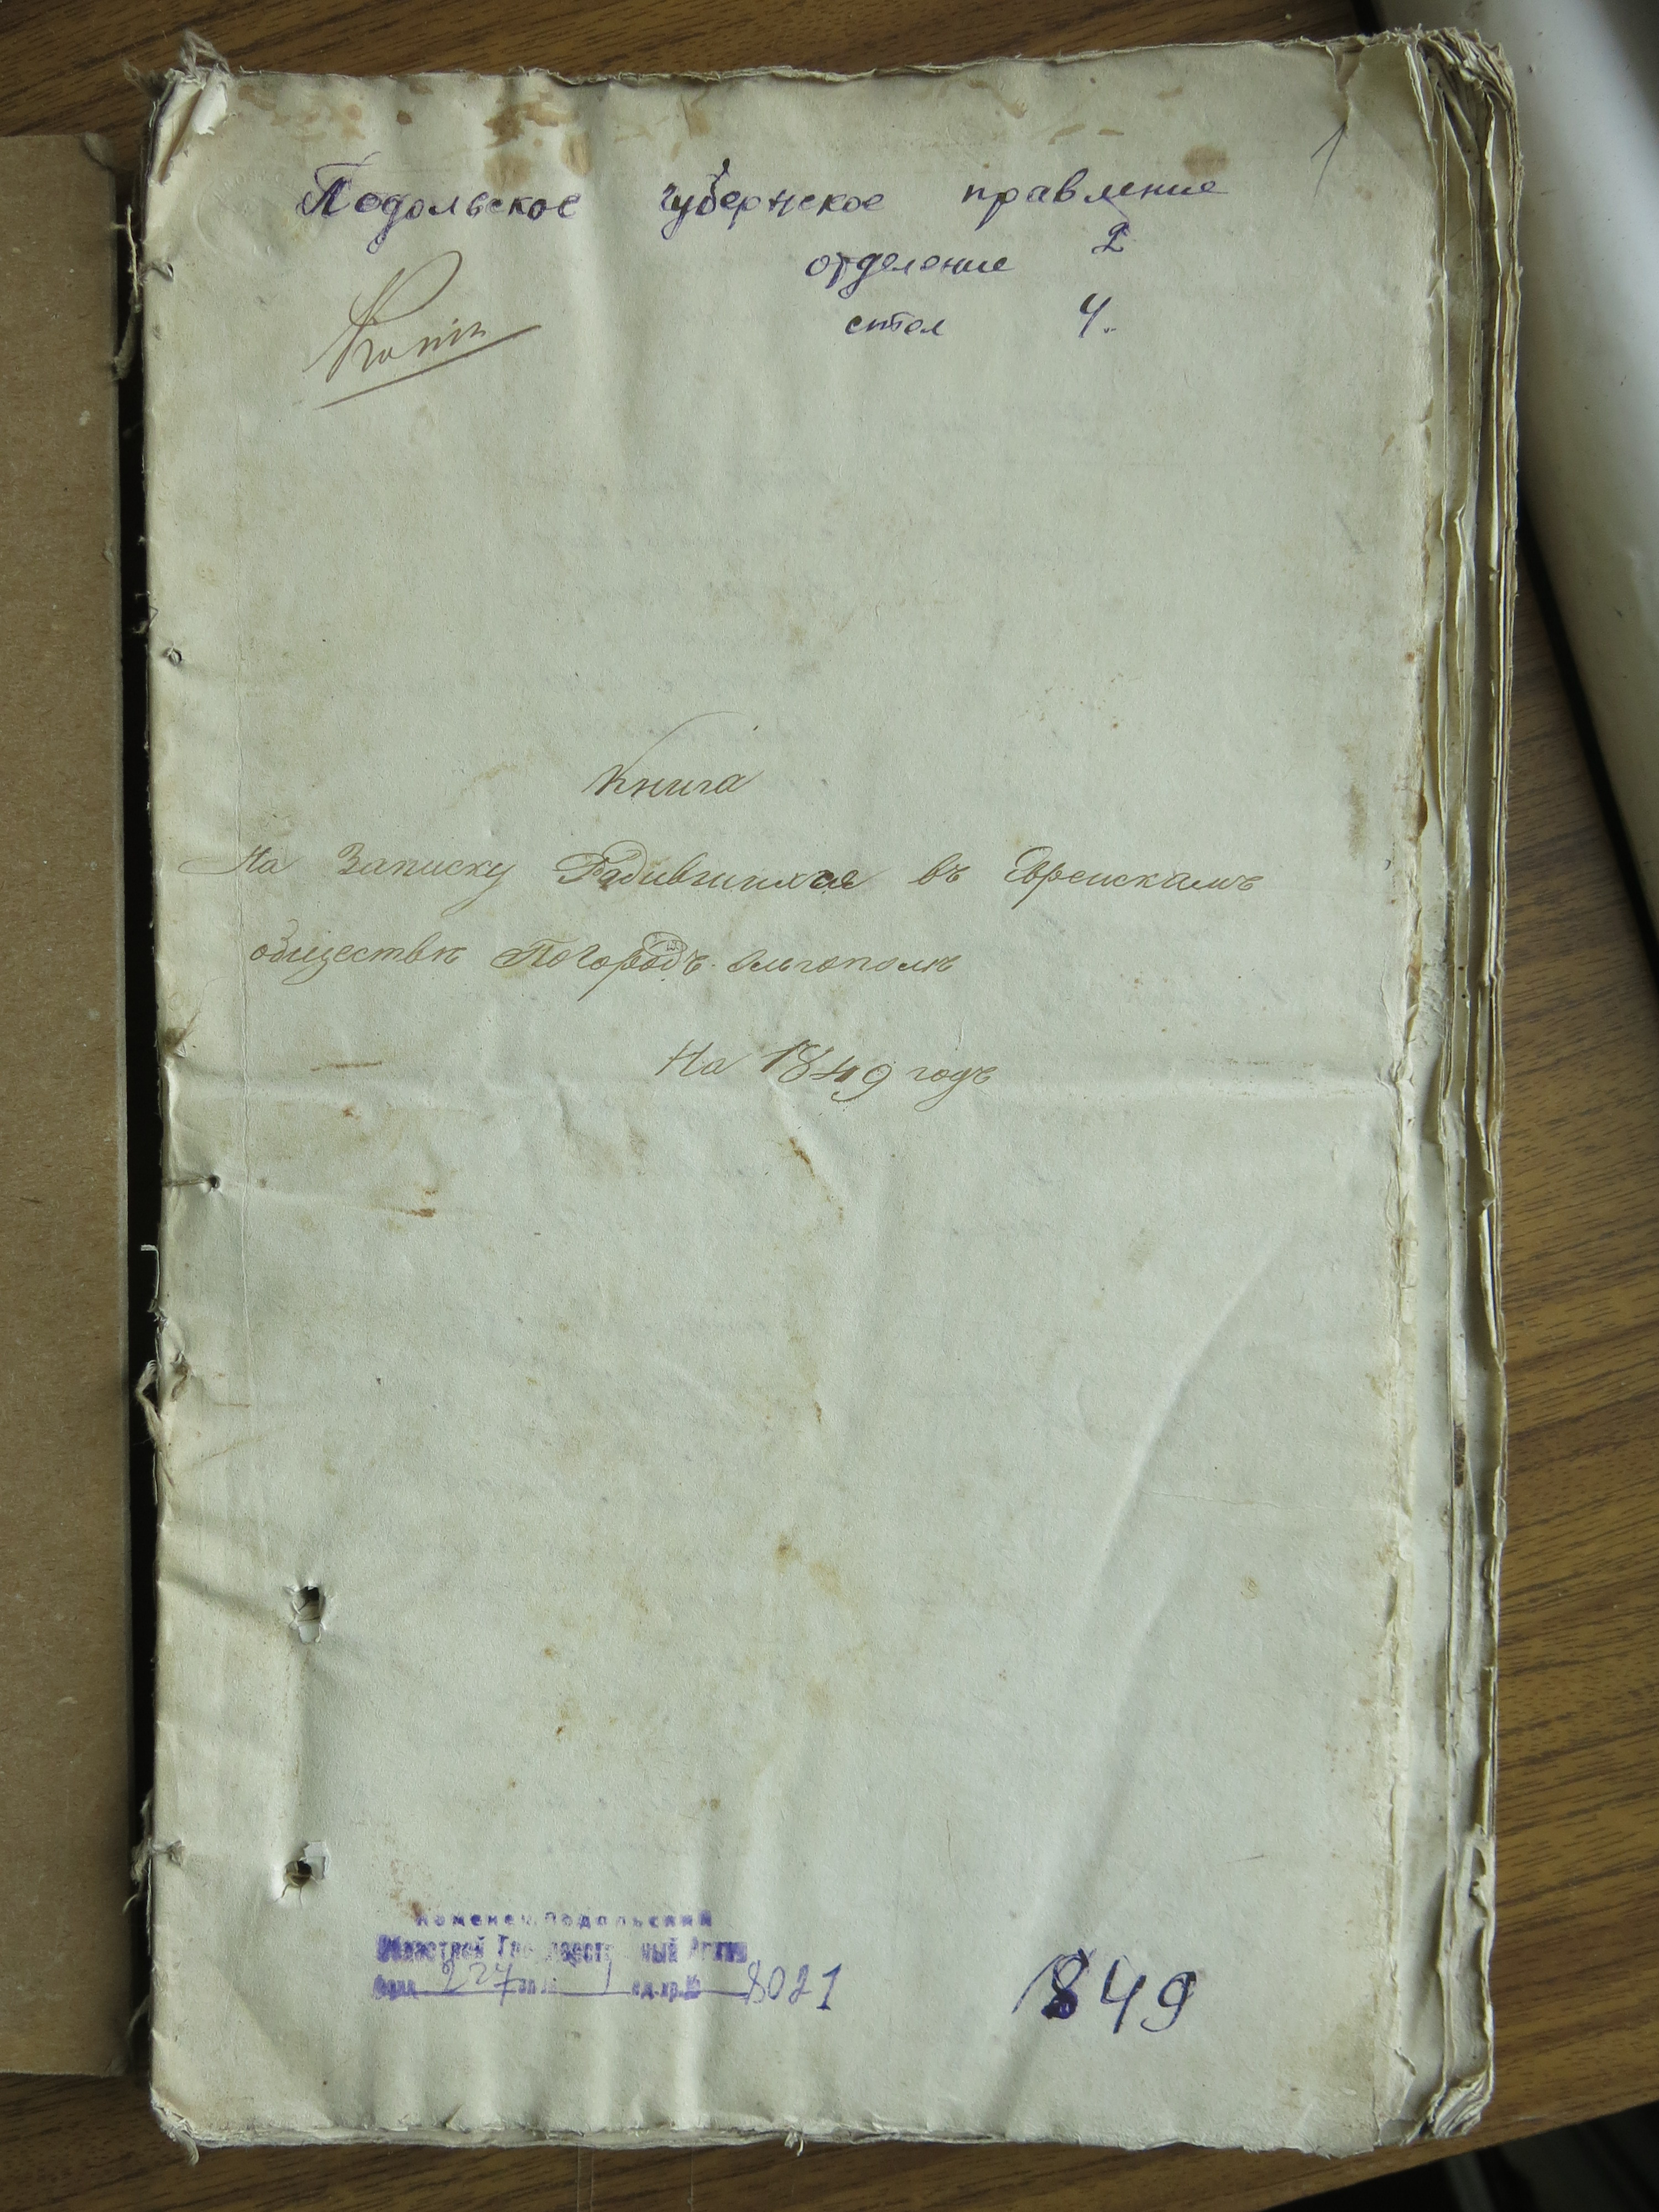 1
Подольское губернское правление
отделение 2
стол 4.
Книга
На Записку Родившихся въ Евреискамъ
обществѣ Погородъ Ольгополѣ
На 1849 годъ
Каменец-Подольский
Областной Государственный Архив
Фонд 227 оп. 1 ед.хр.№ 8021
1849